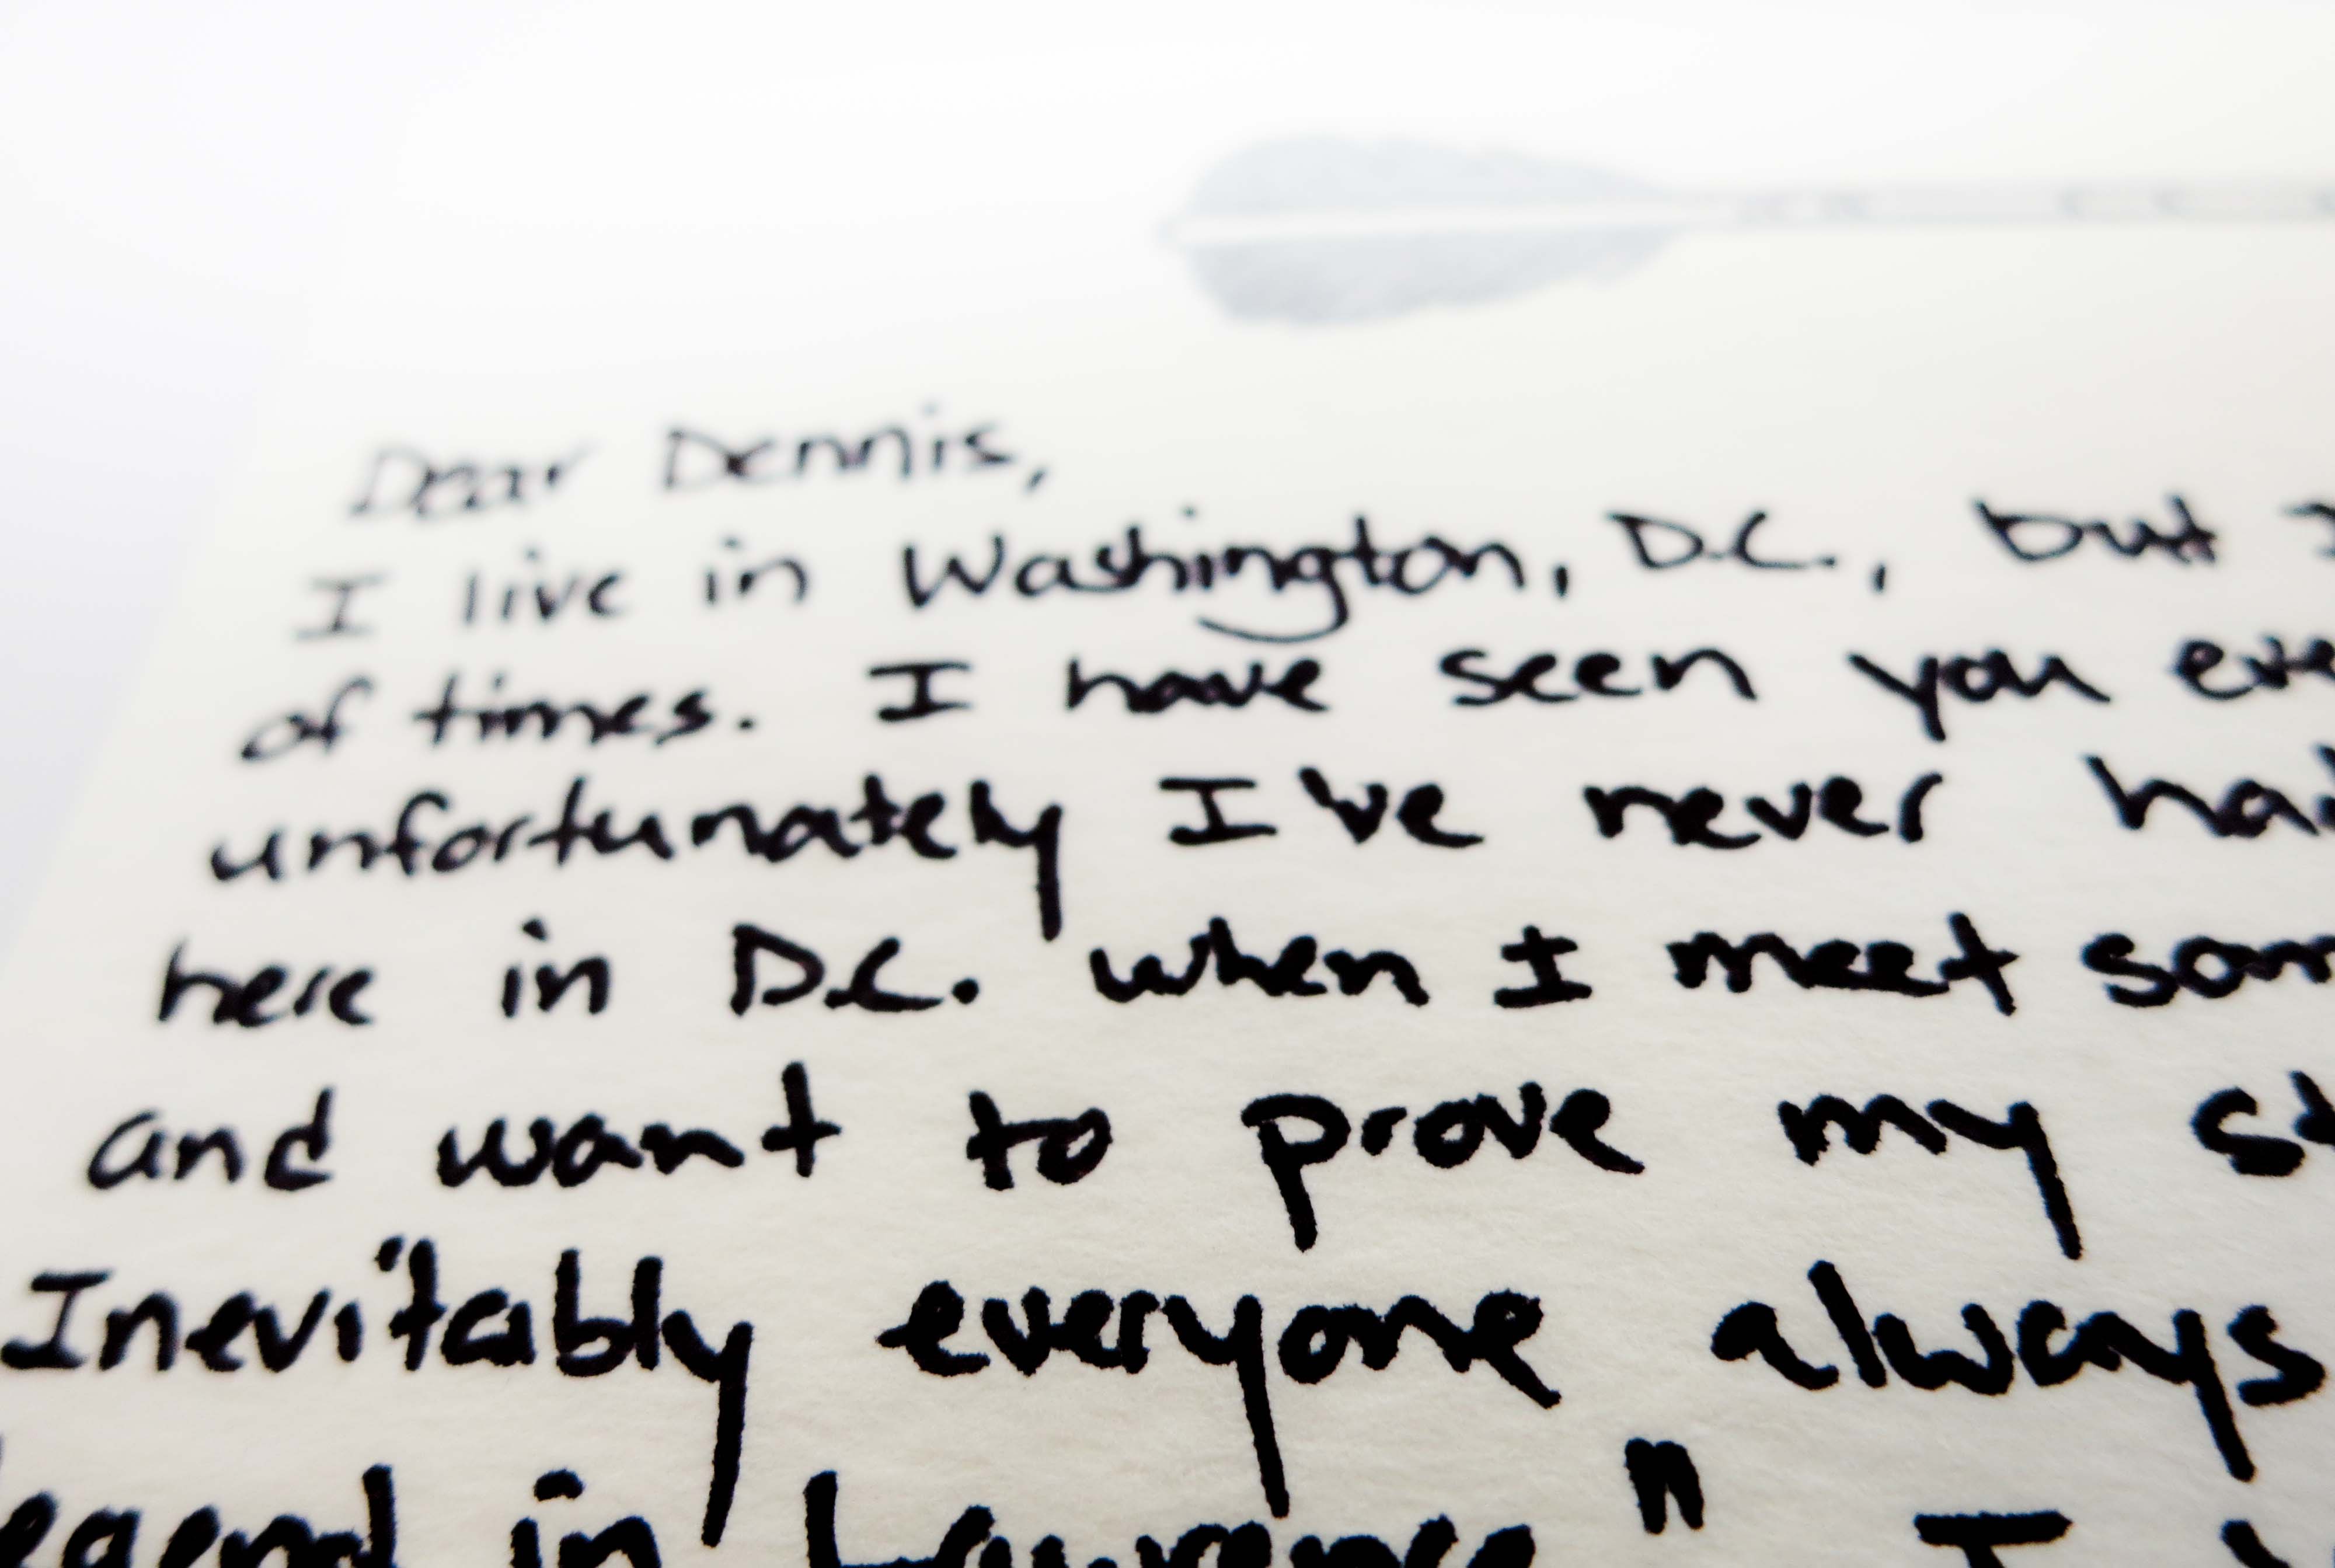 Dear Dennis,
I live in Washington, D.C., but
of times. I have seen you
unfortunately I've never
here in D.C. when I meet
and want to prove my
Inevitably everyone always
in Lawrence" I